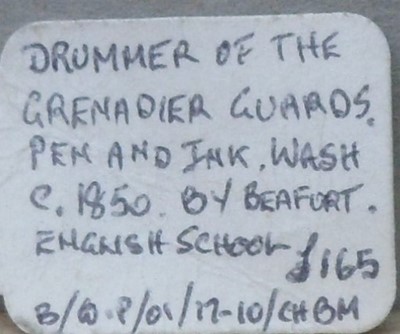 DRUMMER OF THE
GRENADIER GUARDS.
PEN AND INK. WASH
C. 1850. BY BEAFORT.
ENGLISH SCHOOL £165
B/W.P/01/17-10/CHBM